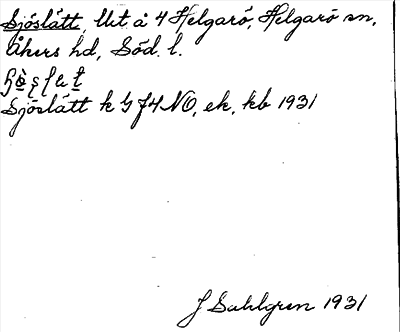 Sjöslätt, Ut å 4 Helgarö, Helgarö sn,
Åkers hd, Söd. l.
Sjöslätt k G J4 NO, ek. kb 1931
J Sahlgren 1931